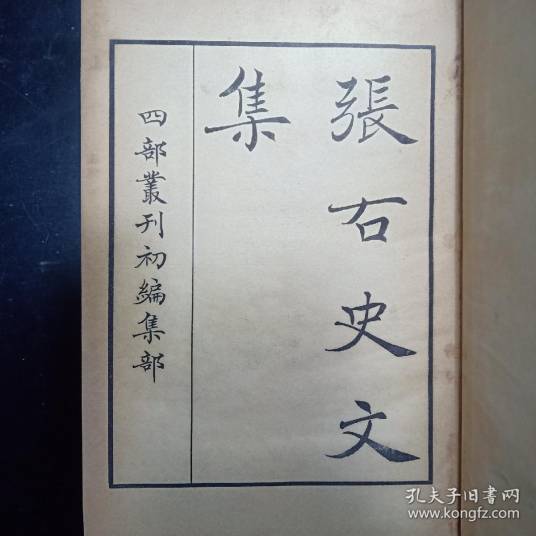 張右史文
集
四部叢刊初編集部
孔夫子旧书网
www.kongfz.com